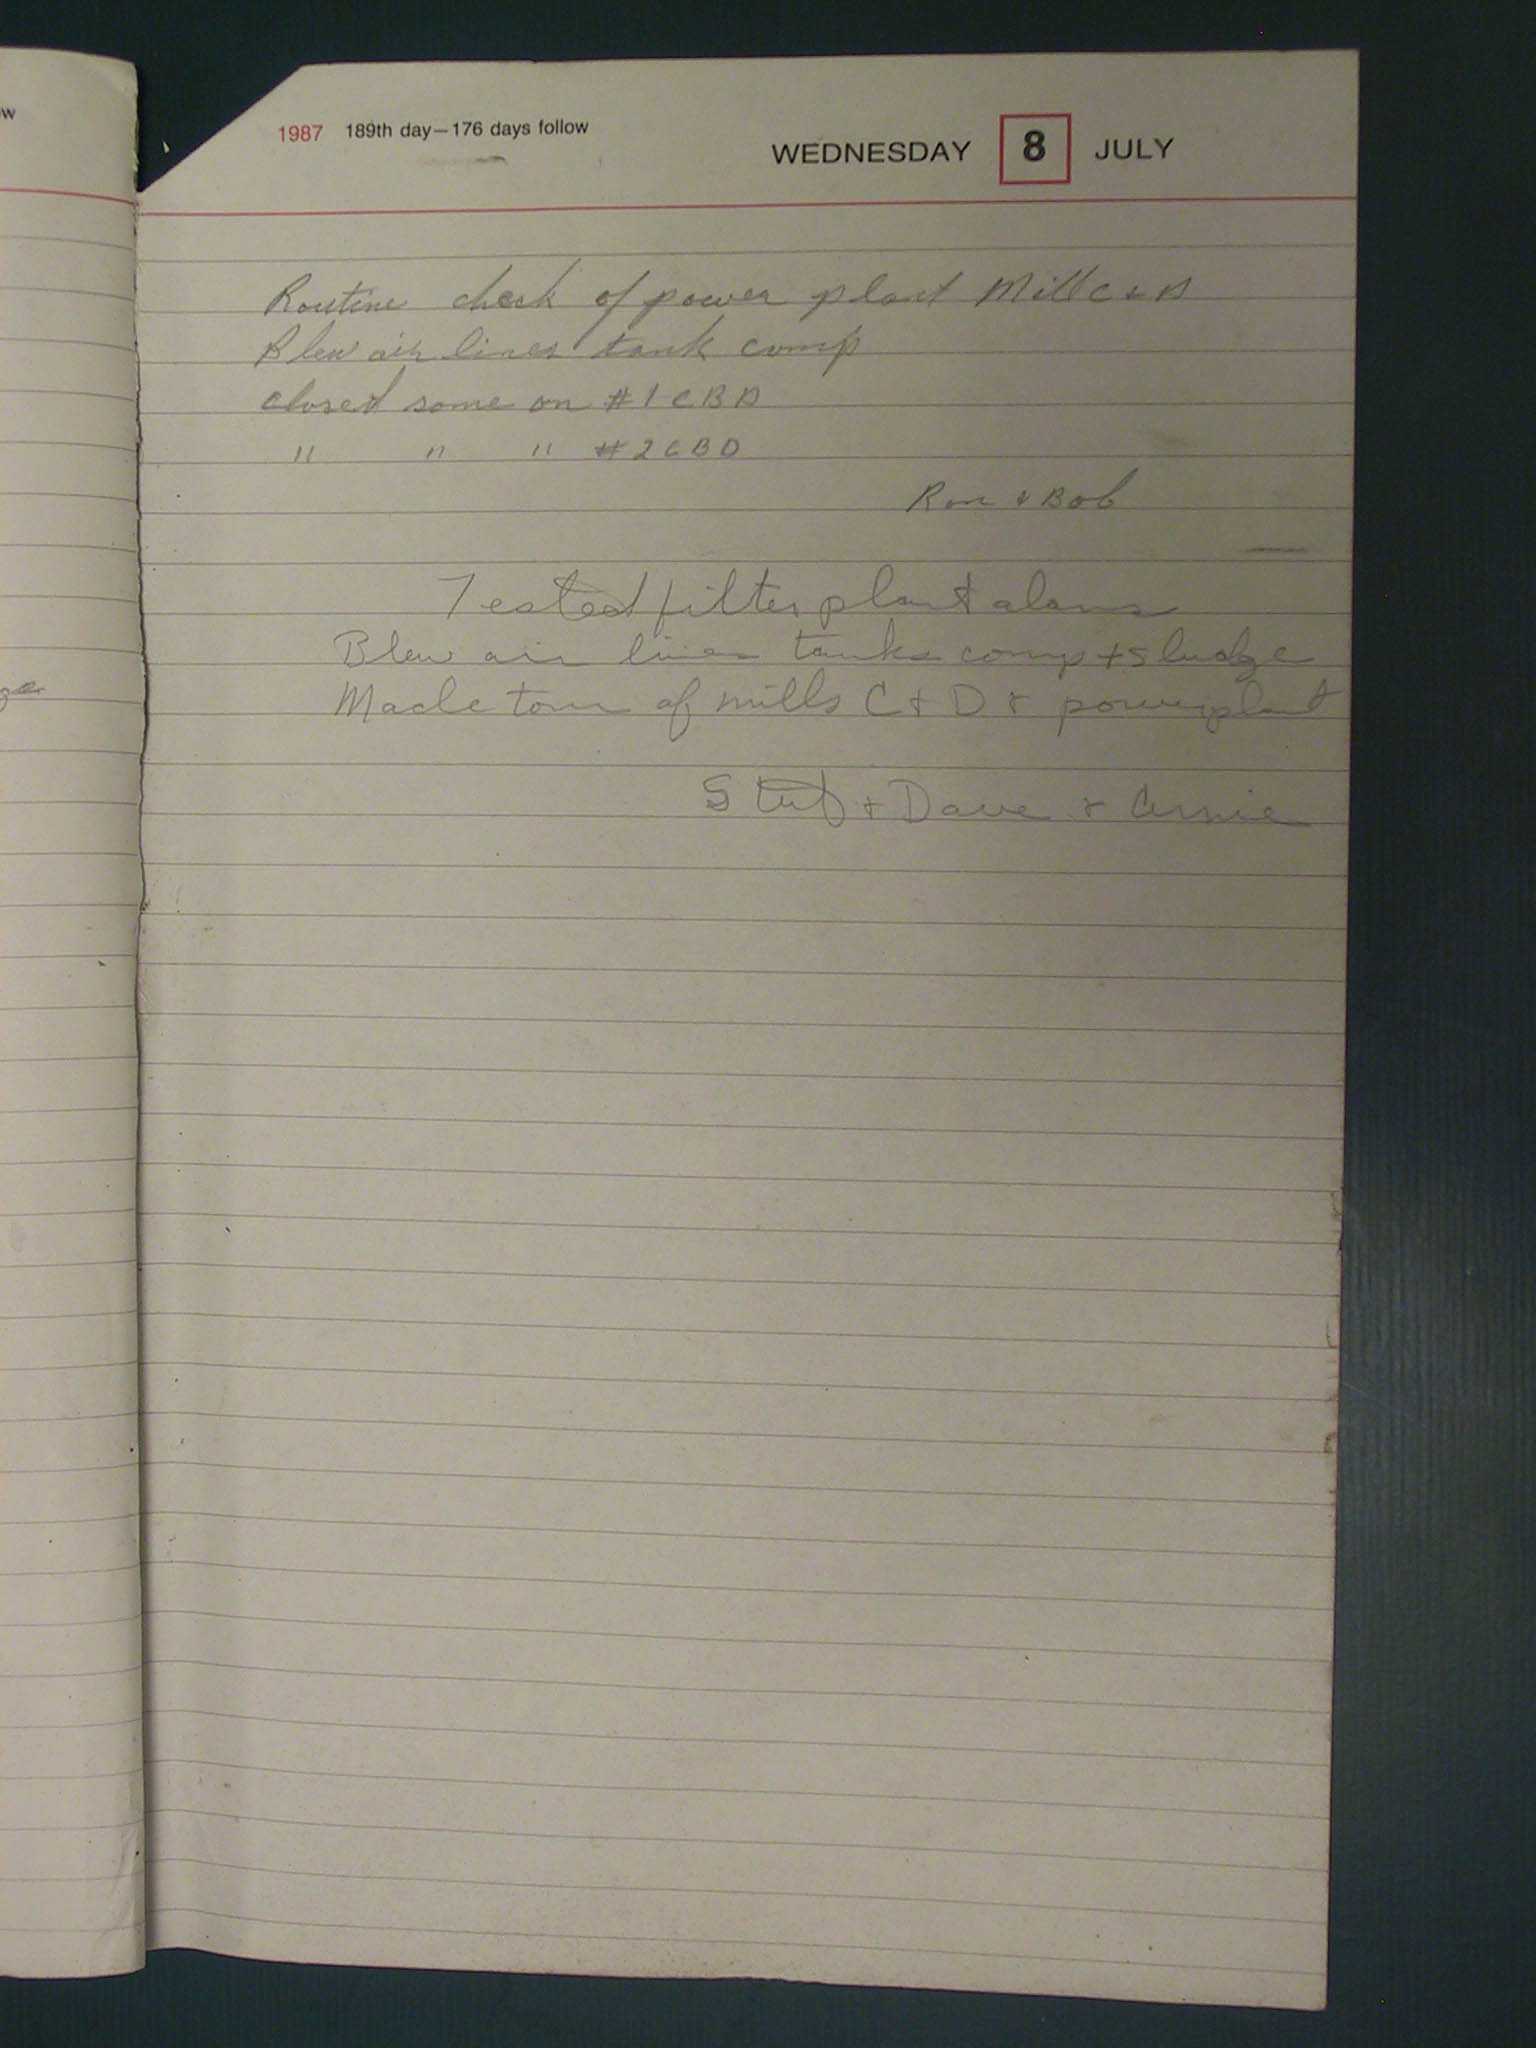 1987 189th day—176 days follow
WEDNESDAY 8 JULY
Routine check of power plant Mill C & D
Blew air lines tank comp
closed some on #1 CBD
" " " #2 CBD
Ron & Bob
Tested filter plant alarm
Blew air lines tanks comp + sludge
Made tour of mills C & D & powerplant
Stub & Dave & Arnie